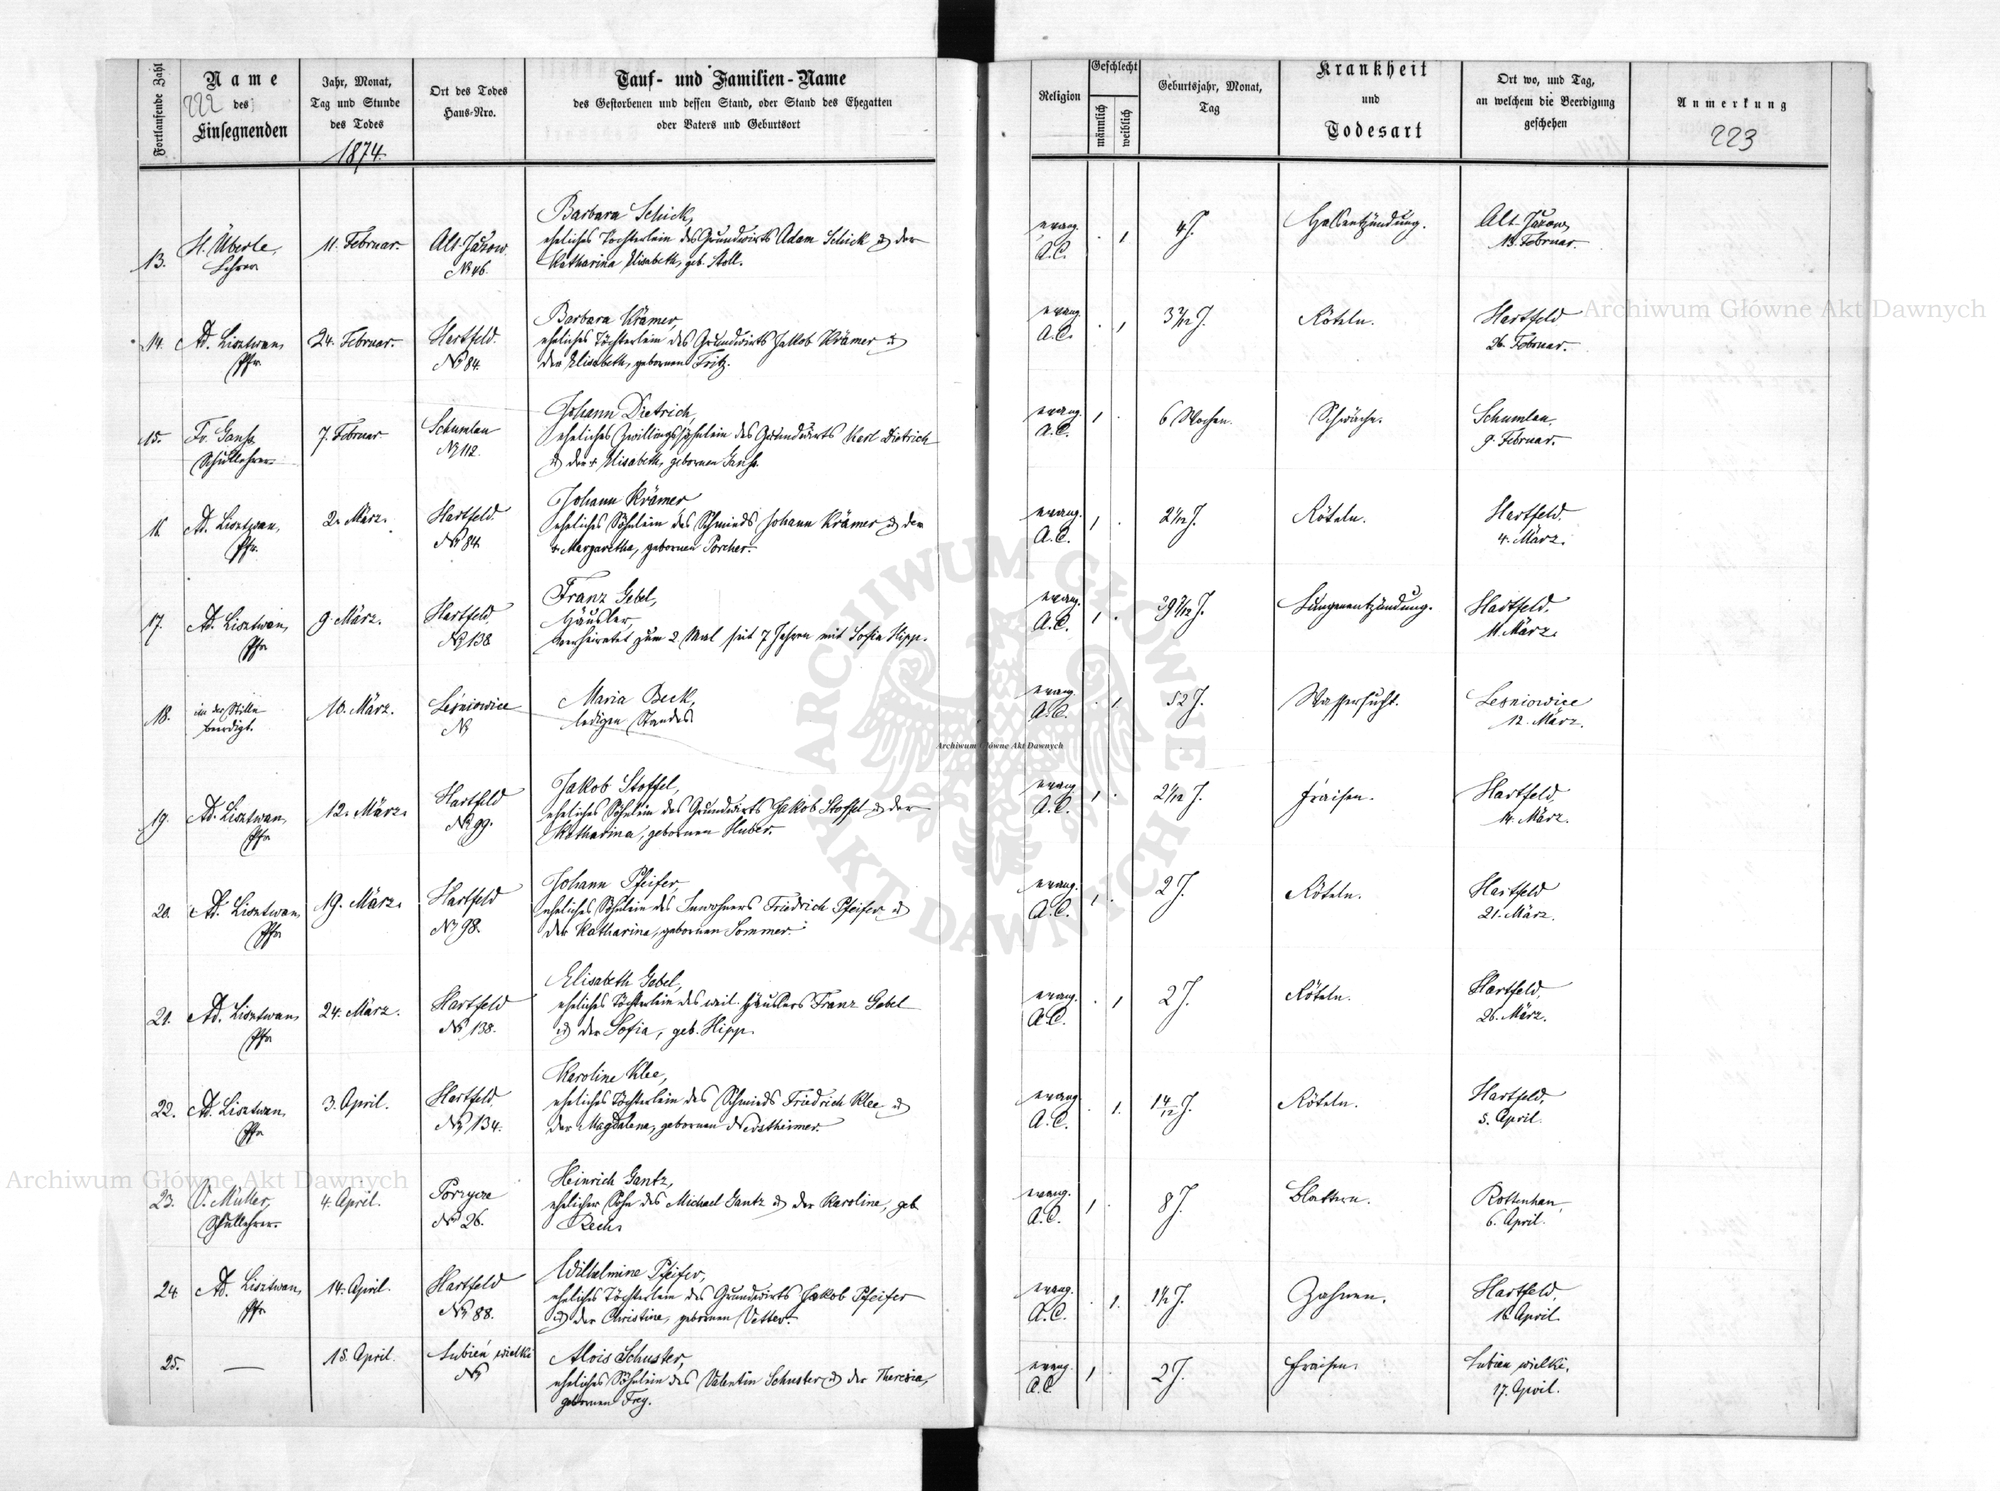 Fortlaufende Zahl
Name
des
Einsegnenden
222
Jahr, Monat,
Tag und Stunde
des Todes
1874.
Ort des Todes
Haus-Nro.
Tauf- und Familien-Name
des Gestorbenen und dessen Stand, oder Stand des Ehegatten
oder Vaters und Geburtsort
Religion
Geschlecht
männlich
weiblich
Geburtsjahr, Monat,
Tag
Krankheit
und
Todesart
Ort wo, und Tag,
an welchem die Beerdigung
geschehen
Anmerkung
223
13.
H. Überle,
Lehrer
11. Februar
Alt-Jażow
№ 46.
Barbara Schick,
eheliches Töchterlein des Grundwirts Adam Schick u. der
Katharina Elisabeth, geb. Stoll.
evang.
A.C.
1
4 J.
Halsentzündung.
Alt-Jażow,
13. Februar.
14.
Ad. Lisztwan,
Pfr.
24. Februar.
Hartfeld.
№ 84.
Barbara Krämer,
eheliches Töchterlein des Grundwirts Jakob Krämer u.
der Elisabeth, gebornen Fritz.
evang.
A.C.
1
Röteln.
Hartfeld
26. Februar.
15.
Fr. Ganß,
Schullehrer.
7. Februar
Schumlau
№ 112.
Johann Dietrich,
eheliches Zwillingssöhnlein des Grundwirts Karl Dietrich
u. der + Elisabeth, gebornen Ganß.
evang.
A.C.
1
6 Wochen.
Schwäche.
Schumlau,
9. Februar.
16.
Ad. Lisztwan,
Pfr.
2. März.
Hartfeld.
№ 84.
Johann Krämer,
eheliches Söhnlein des Schmieds Johann Krämer u. der
+ Margaretha, gebornen Porcher.
evang.
A.C.
1
2 1/12 J.
Röteln.
Hartfeld.
4. März.
17.
Ad. Lisztwan,
Pfr.
9. März.
Hartfeld,
№ 138
Franz Gebel,
Häusler,
verheiratet zum 2 Mal seit 7 Jahren mit Sofia Hipp.
evang.
A.C.
1
Lungenentzündung.
Hartfeld.
11. März.
18.
in der Stille
beerdigt.
10. März.
Leśniowice
№
Maria Beck,
ledigen Standes
evang.
A.C.
1
52 J.
Wassersucht.
Leśniowice
12. März.
19.
Ad. Lisztwan,
Pfr.
12. März.
Hartfeld
№ 99.
Jakob Stoffel,
eheliches Söhnlein des Grundwirts Jakob Stoffel u. der
Katharina, gebornen Huber.
evang.
A.C.
1
2 1/12 J.
Fraisen.
Hartfeld,
14. März.
20.
Ad. Lisztwan,
Pfr.
19. März.
Hartfeld
№ 98.
Johann Pfeifer,
eheliches Söhnlein des Inwohners Friedrich Pfeifer u.
der Katharina, gebornen Sommer.
evang.
A.C.
1
2 J.
Röteln.
Hartfeld
21. März.
21.
Ad. Lisztwan,
Pfr.
24. März.
Hartfeld
№ 138.
Elisabeth Gebel,
eheliches Töchterlein des weil. Häuslers Franz Gebel
u. der Sofia, geb. Hipp.
evang.
A.C.
1
2 J.
Röteln.
Hartfeld,
26. März.
22.
Ad. Lisztwan,
Pfr.
3. April.
Hartfeld,
№ 134.
Karoline Klee,
eheliches Töchterlein des Schmieds Friedrich Klee u.
der Magdalena, gebornen Nerstheimer.
evang.
A.C.
1.
14/12 J.
Röteln.
Hartfeld,
5. April.
23.
O. Müller,
Schullehrer.
4. April.
Porzyce
№ 26.
Heinrich Gantz,
ehelicher Sohn des Michael Gantz u. der Karoline, geb.
Rech.
evang.
A.C.
1
8 J.
Blattern.
Rottenhan,
6. April.
24.
Ad. Lisztwan,
Pfr.
14. April.
Hartfeld
№ 88.
Wilhelmine Pfeifer,
eheliches Töchterlein des Grundwirts Jakob Pfeifer
u. der Christine, gebornen Vetter.
evang.
A.C.
1.
1 1/2 J.
Zahnen.
Hartfeld,
16. April.
25.
—
15. April.
Lubień wielki
№
Alois Schuster,
eheliches Söhnlein des Valentin Schuster u. der Theresia,
gebornen Frey.
evang.
A.C.
1
2 J.
Fraisen.
Lubien wielki,
17. April.
Archiwum Główne Akt Dawnych
Archiwum Główne Akt Dawnych
Archiwum Główne Akt Dawnych
ARCHIWUM GŁÓWNE AKT DAWNYCH